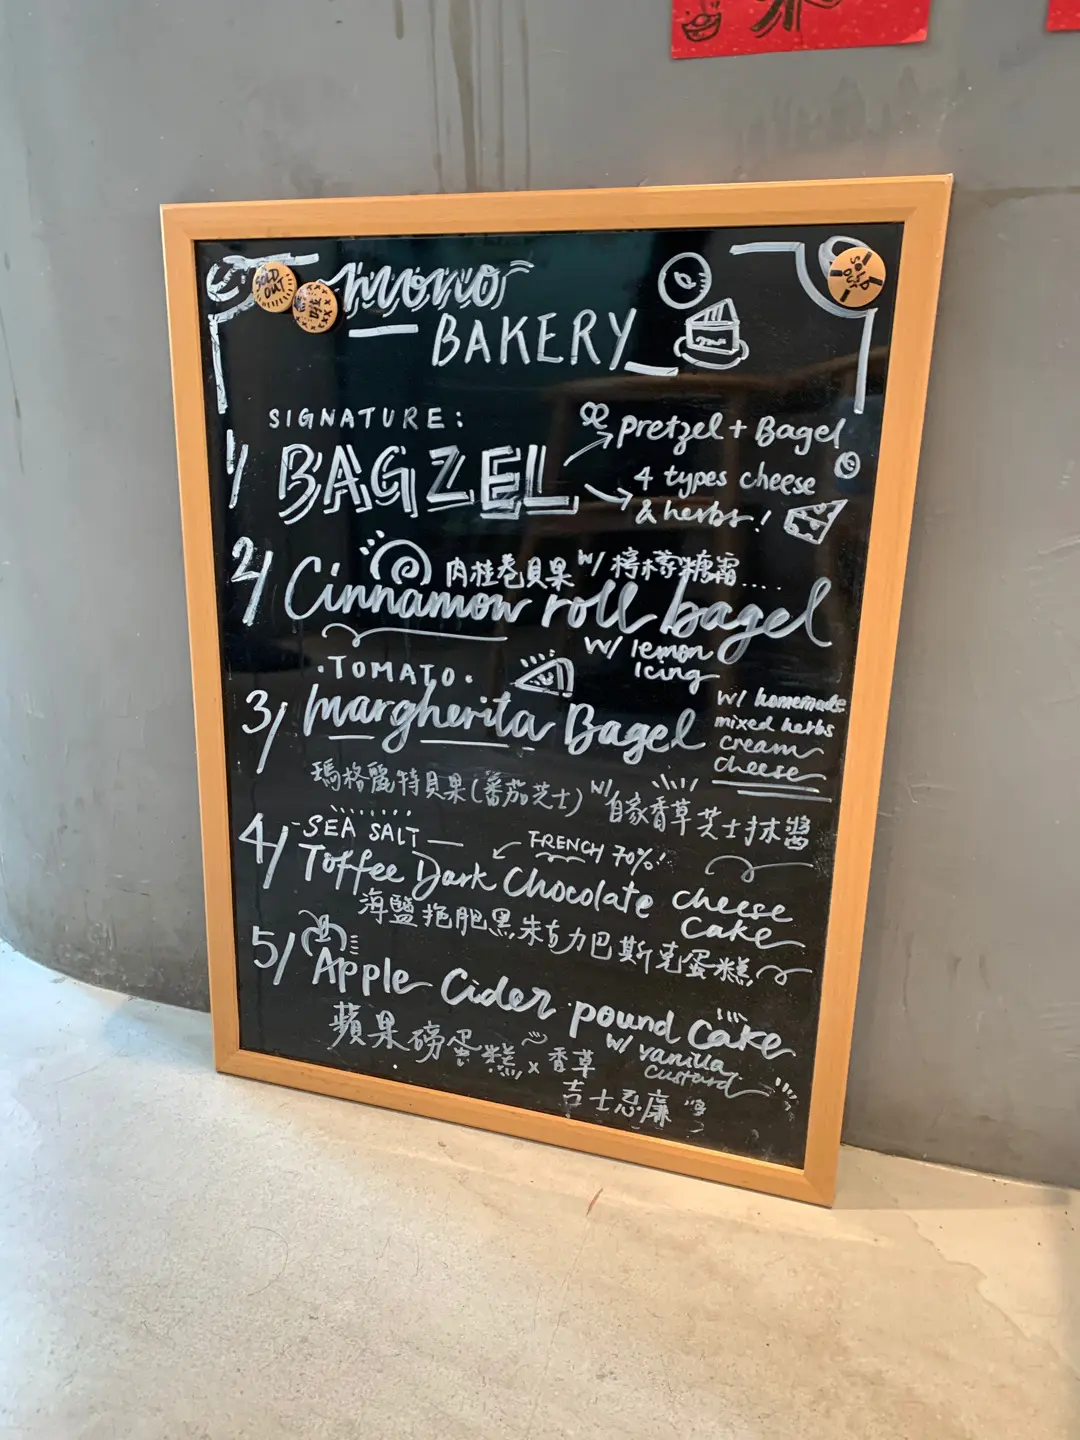 SOLD OUT
mono
SOLD OUT
BAKERY
SIGNATURE:
1/ BAGZEL
pretzel + Bagel
4 types cheese
& herbs!
肉桂卷貝果 w/ 檸檬糖霜....
2/ Cinnamon roll bagel
w/ lemon
Icing
·TOMATO·
3/ Margherita Bagel
w/ homemade
mixed herbs
cream
cheese
瑪格麗特貝果(蕃茄芝士) w/ 自家香草芝士抹醬
SEA SALT
FRENCH 70%!
4/ Toffee Dark Chocolate cheese
cake
海鹽拖肥黑朱古力巴斯克蛋糕
5/ Apple Cider pound cake
w/ vanilla
custard
蘋果磅蛋糕 x 香草
吉士忌廉